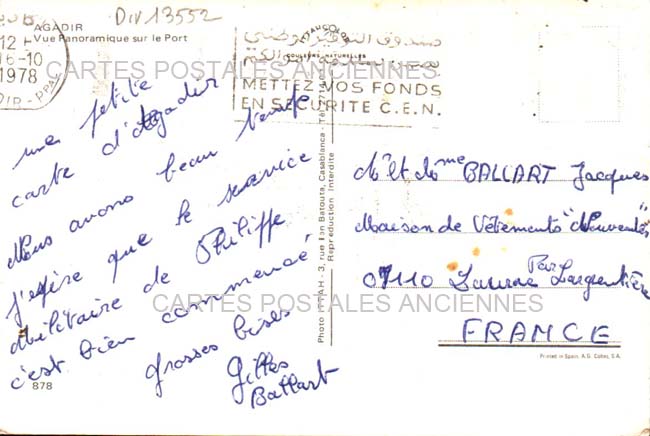 DIV 13552
AGADIR
Vue Panoramique sur le Port
12 H
16-10
1978
صندوق التوفير الوطني
METTEZ VOS FONDS
EN SECURITE C.E.N.
CARTES POSTALES ANCIENNES
une petite
carte d'Agadir
Nous avons beau temps
j'espère que le service
Militaire de Philippe
c'est bien commencé
grosses bises
Gilles
Ballart
878
Reproduction interdite
Printed in Spain, A.G.
M. et Mme BALLART Jacques
Maison de Vêtements "Nouveautés"
07110 Par Largentière
FRANCE
CARTES POSTALES ANCIENNES